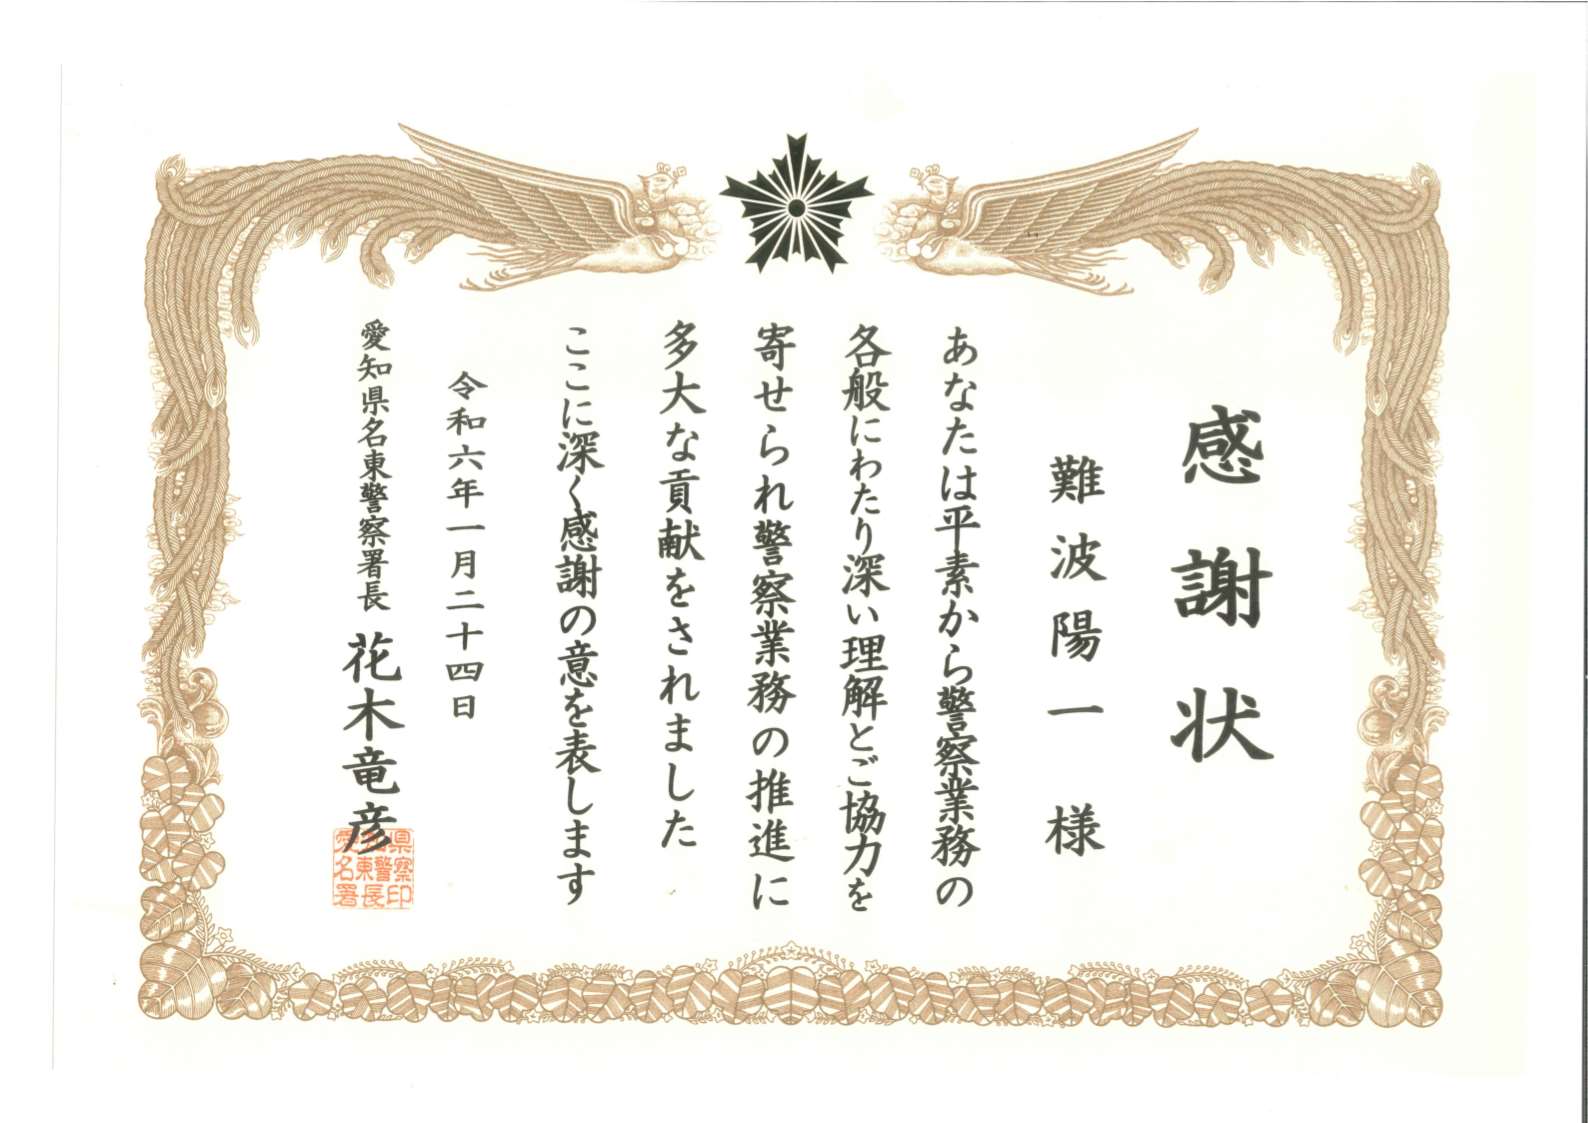 感謝状
難波陽一様
あなたは平素から警察業務の
各般にわたり深い理解とご協力を
寄せられ警察業務の推進に
多大な貢献をされました
ここに深く感謝の意を表します
令和六年一月二十四日
愛知県名東警察署長 花木竜彦
愛知県
名東警察
署長印